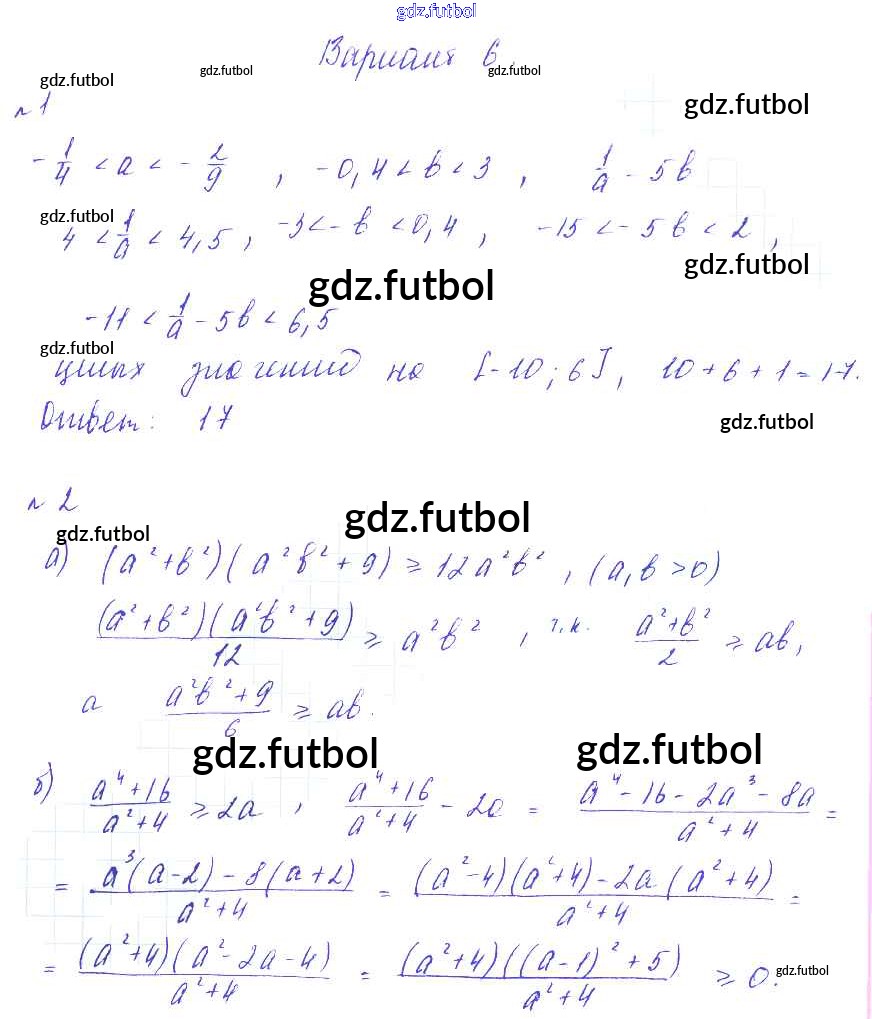 gdz.futbol
Вариант 6
gdz.futbol gdz.futbol gdz.futbol
№1 gdz.futbol
-1/4 < a < -2/9 , -0,4 < b < 3 , 1/a - 5b
gdz.futbol
4 < 1/a < 4,5 , -3 < -b < 0,4 , -15 < -5b < 2 ,
gdz.futbol
gdz.futbol
-11 < 1/a - 5b < 6,5
gdz.futbol
целых значений на [-10; 6], 10+6+1=17.
Ответ: 17 gdz.futbol
№2
gdz.futbol
gdz.futbol
а) (a²+b²)(a²b²+9) ≥ 12a²b² , (a,b>0)
(a²+b²)(a²b²+9)/12 ≥ a²b² , т.к. (a²+b²)/2 ≥ ab,
а (a²b²+9)/6 ≥ ab.
gdz.futbol gdz.futbol
б) (a⁴+16)/(a²+4) ≥ 2a , (a⁴+16)/(a²+4) - 2a = (a⁴-16-2a³-8a)/(a²+4) =
= (a³(a-2)-8(a+2))/(a²+4) = ((a²-4)(a²+4)-2a(a²+4))/(a²+4) =
= ((a²+4)(a²-2a-4))/(a²+4) = ((a²+4)((a-1)²+5))/(a²+4) ≥ 0.
gdz.futbol